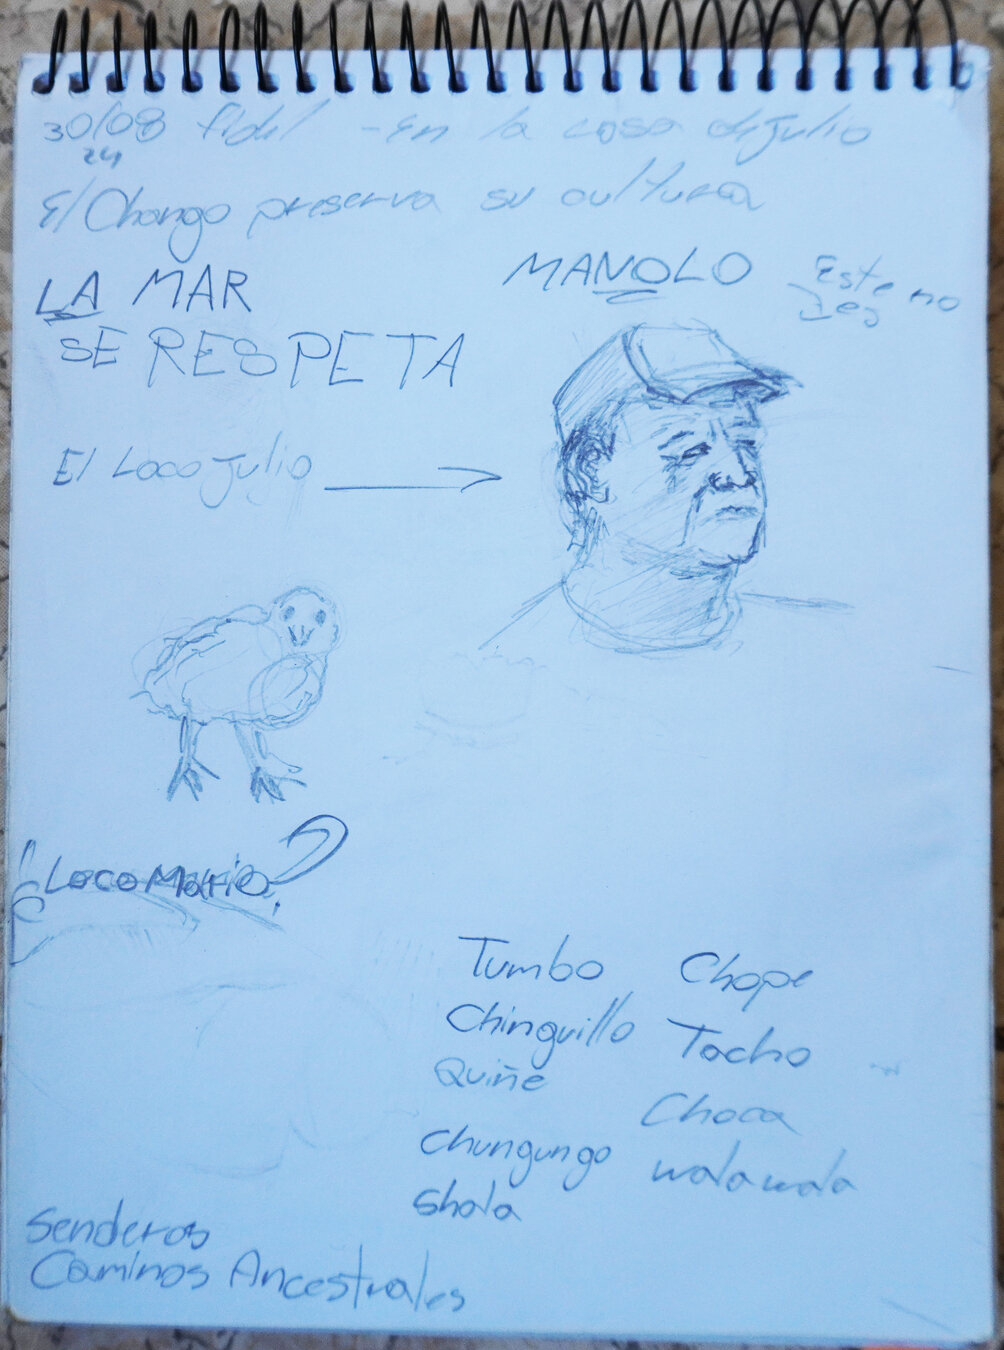 30/08 fidel - En la casa de Julio
24
El Chango preserva su cultura
LA MAR
SE RESPETA
MANOLO
Este no
es
El Loco Julio
¿Loco Mario?
Tumbo
Chope
Chinguillo
Tacho
Quiñe
Choca
Chungungo
walawala
Shala
Senderos
Caminos Ancestrales